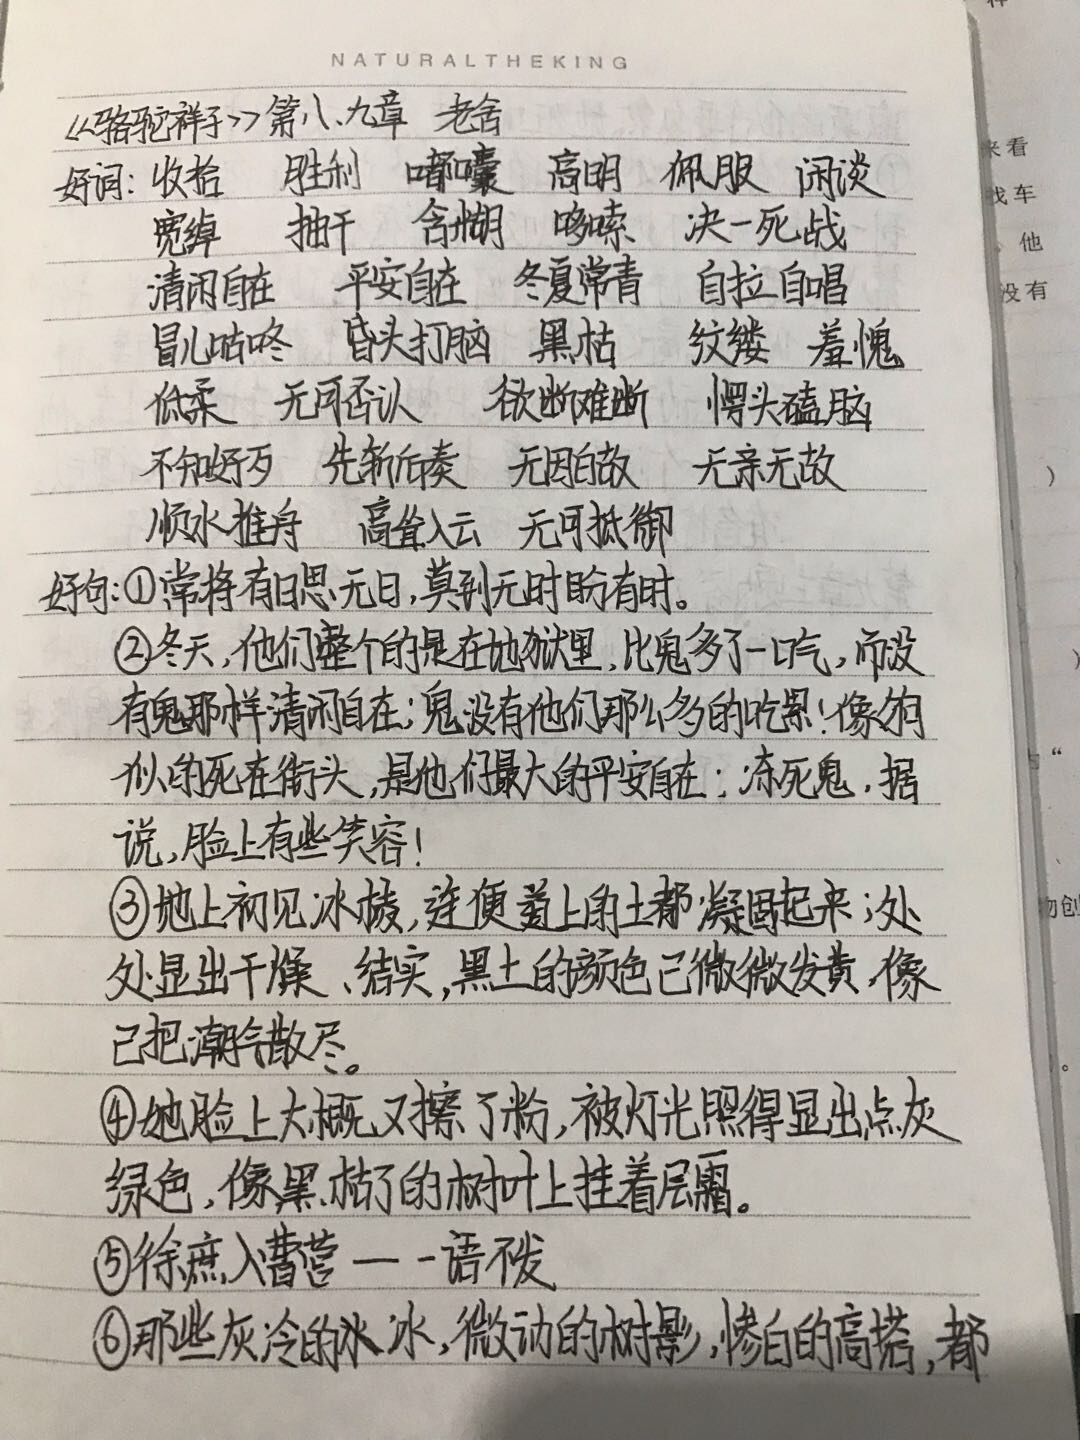 NATURALTHEKING
《骆驼祥子》第八、九章 老舍
好词：收拾 胜利 嘟囔 高明 佩服 闲谈
宽绰 抽干 含糊 哆嗦 决一死战
清闲自在 平安自在 冬夏常青 自拉自唱
冒儿咕咚 昏头打脑 黑枯 纹缕 羞愧
低柔 无可否认 欲断难断 愣头磕脑
不知好歹 先斩后奏 无因白故 无亲无故
顺水推舟 高耸入云 无可抵御
好句：①常将有日思无日，莫到无时盼有时。
②冬天，他们整个的是在地狱里，比鬼多了一口气，而没
有鬼那样清闲自在；鬼没有他们那么多的吃累！像条狗
似的死在街头，是他们最大的平安自在；冻死鬼，据
说，脸上有些笑容！
③地上初见冰棱，连便道上的土都凝固起来；处
处显出干燥、结实，黑土的颜色已微微发黄，像
已把潮气散尽。
④她脸上大概又擦了粉，被灯光照得显出点灰
绿色，像黑枯了的树叶上挂着层霜。
⑤徐庶入曹营——一语不发
⑥那些灰冷的冰，微动的树影，惨白的高塔，都
来看
找车
他
没有
）
）
“
物创
。